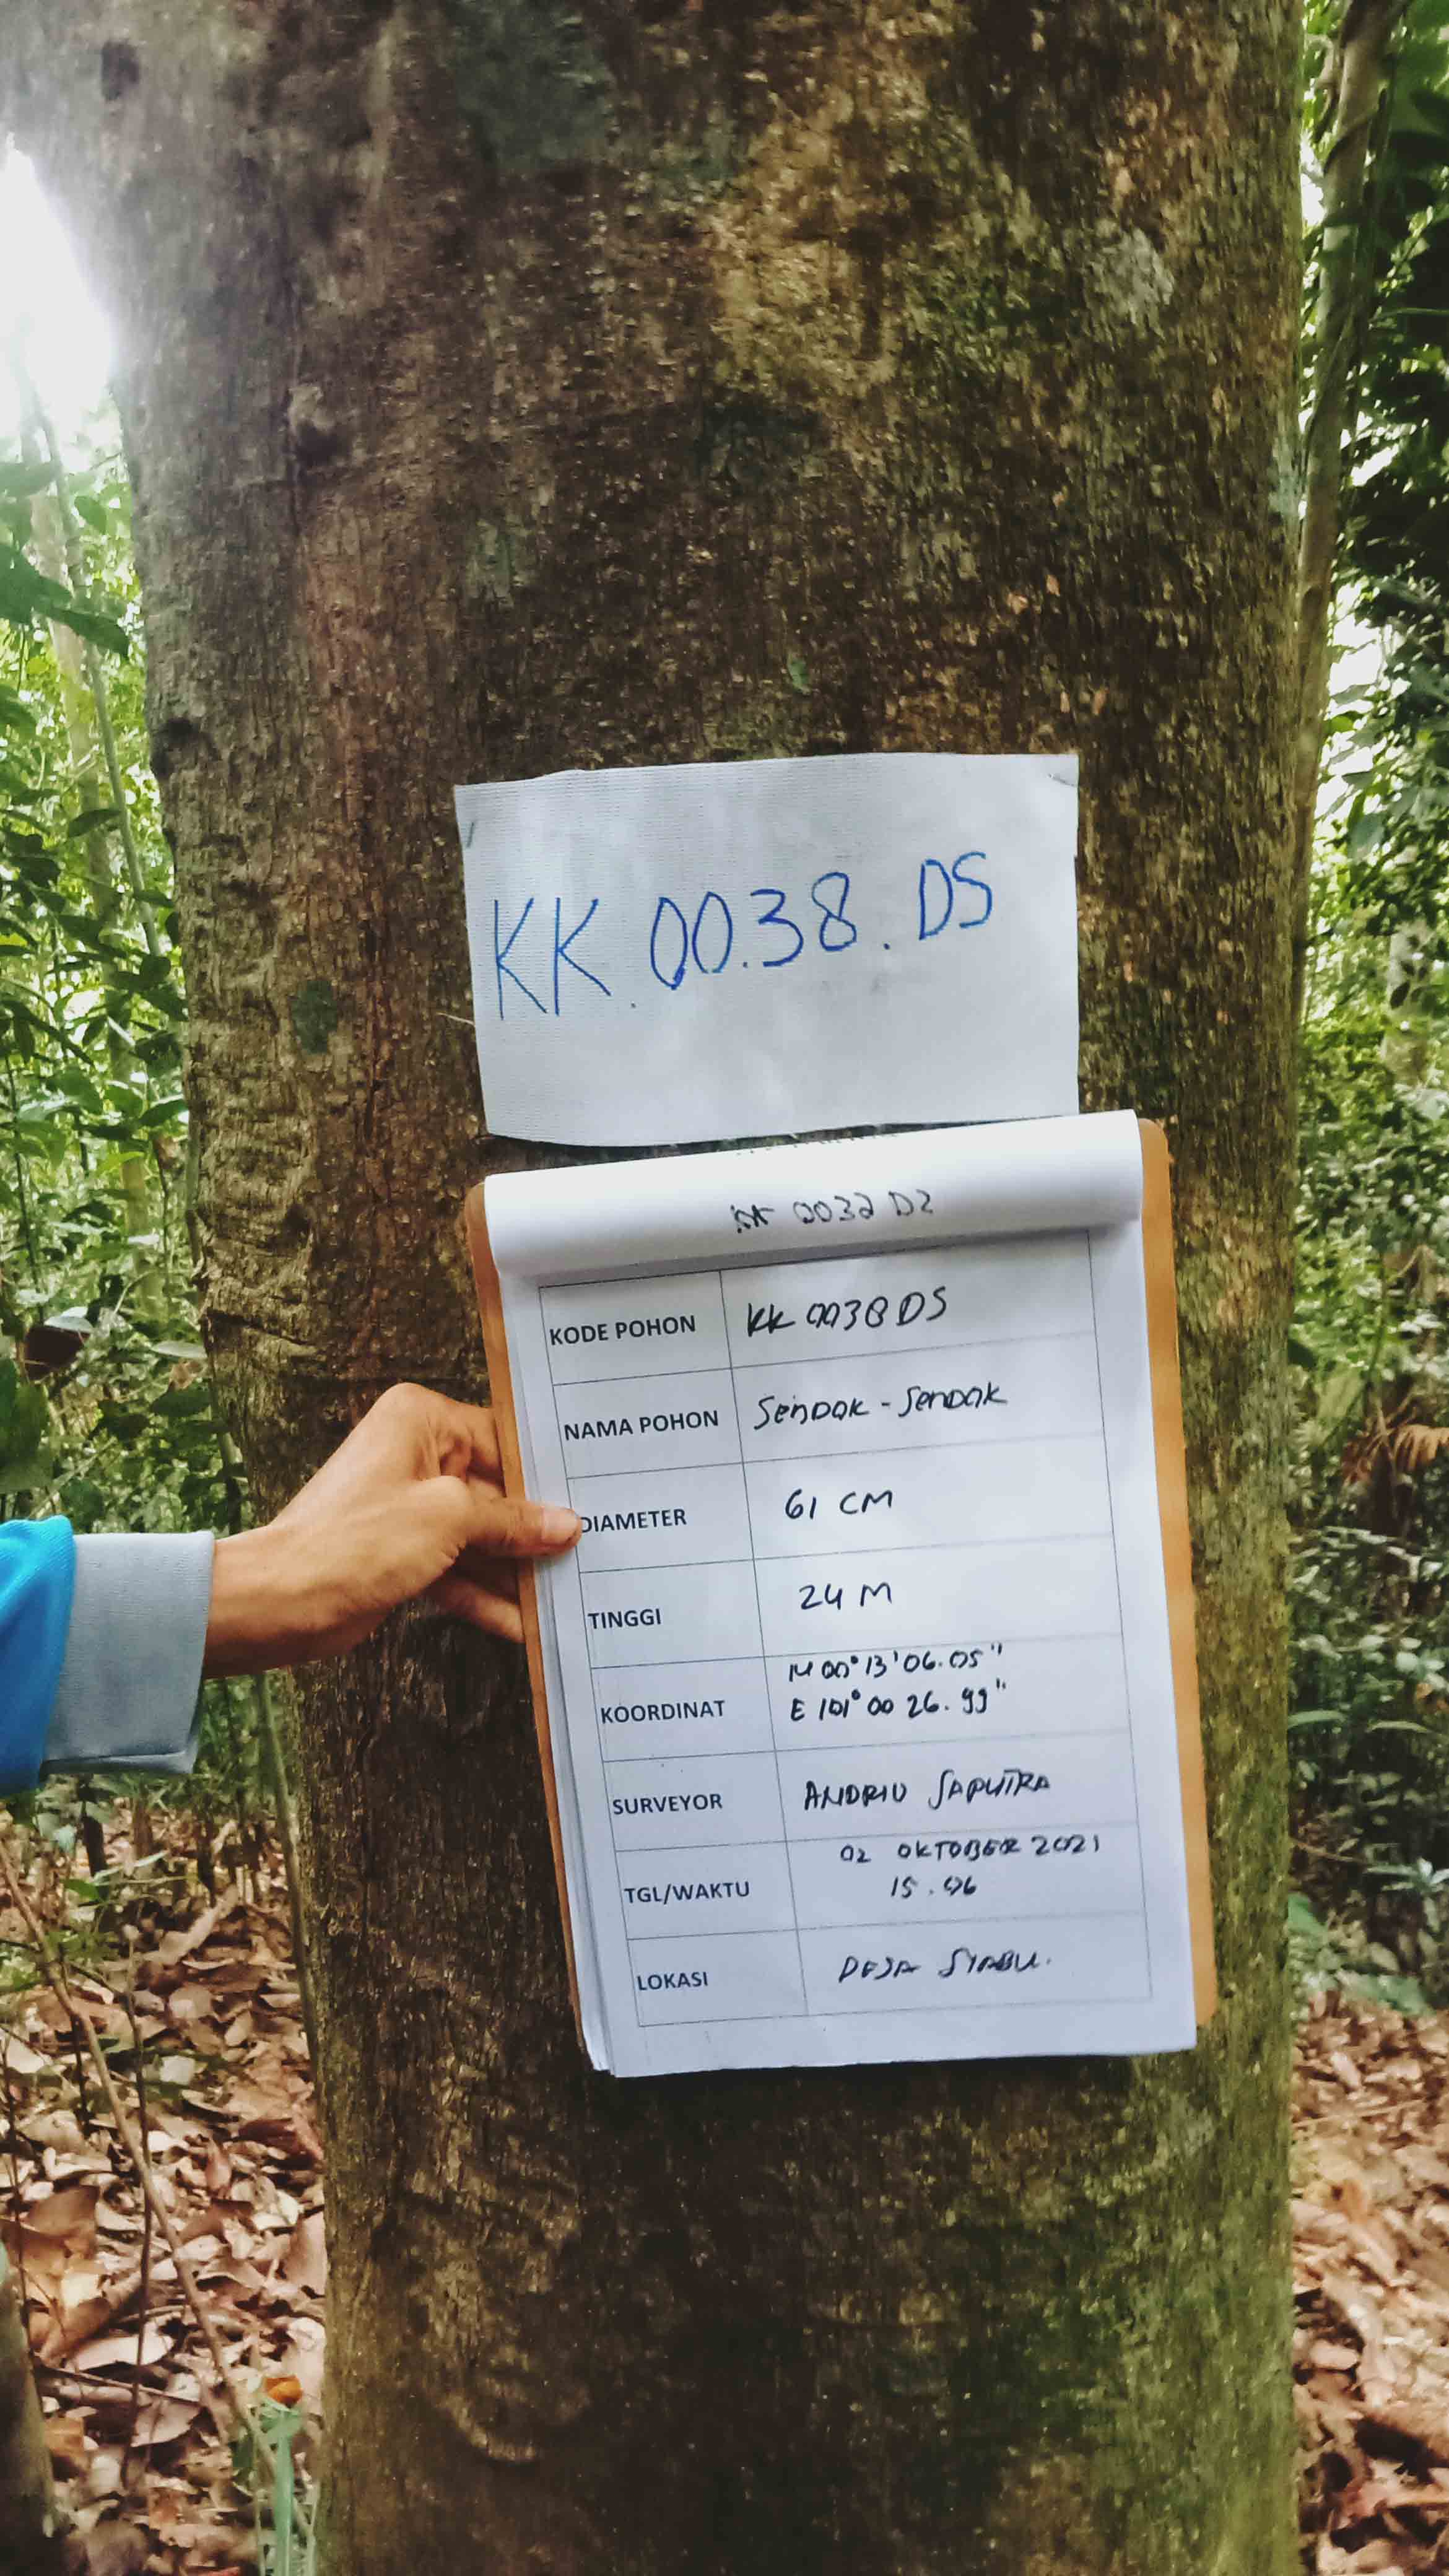 KK.00.38.DS
KODE POHON KK 0038 DS
NAMA POHON Sendok - Sendok
DIAMETER 61 CM
TINGGI 24 M
KOORDINAT N 00° 13' 06.05"
E 101° 00 26.99"
SURVEYOR SAPUTRA
TGL/WAKTU 02 OKTOBER 2021
15.
LOKASI DESA SIABU.